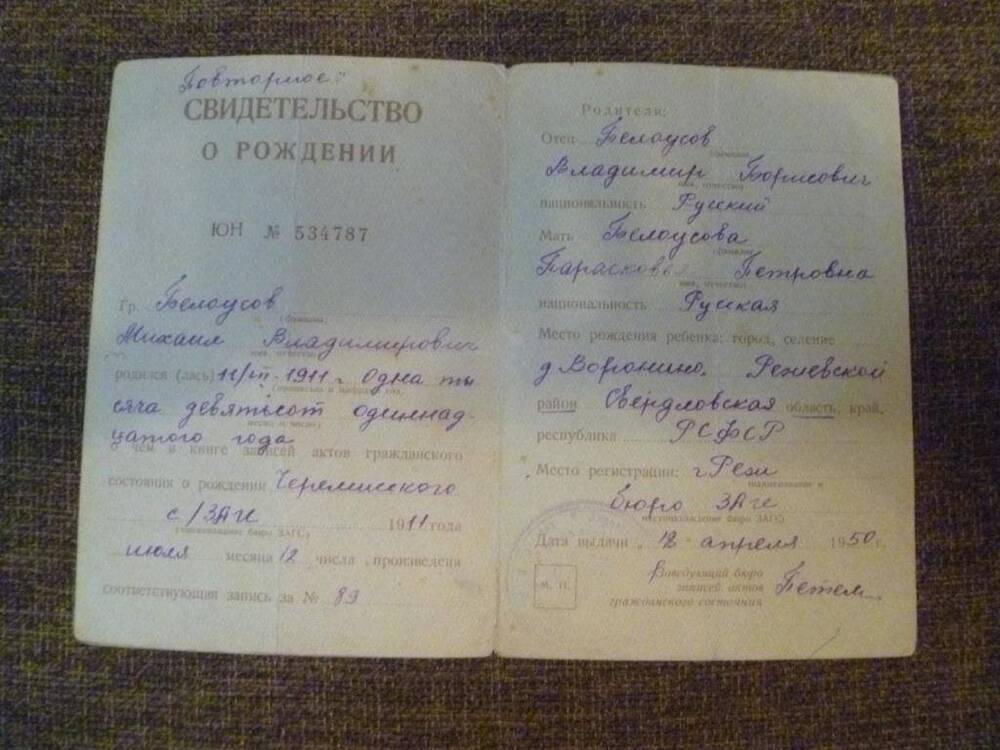 Повторное
СВИДЕТЕЛЬСТВО
О РОЖДЕНИИ
ЮН № 534787
Гр. Белоусов
(фамилия,
Михаил Владимирович
имя, отчество)
родился (лась) 11/VII-1911 г. одна ты
сяча девятьсот одиннад-
цатого года
о чем в книге записей актов гражданского
состояния о рождении Черемисского
с/ЗАГС
(наименование бюро ЗАГС)
1911 года
июля месяца 12 числа произведена
соответствующая запись за № 89
Родители:
Отец Белоусов
(фамилия,
Владимир Борисович
имя, отчество)
национальность Русский
Мать Белоусова
(фамилия,
Парасковья Петровна
имя, отчество)
национальность Русская
Место рождения ребенка: город, селение
д Воронино. Режевской
район Свердловская область, край,
республика РСФСР
Место регистрации: г Реж
(наименование и
бюро ЗАГС
местонахождение бюро ЗАГС)
Дата выдачи 12 апреля 1950 г.
М. П.
Заведующий бюро
записей актов
гражданского состояния